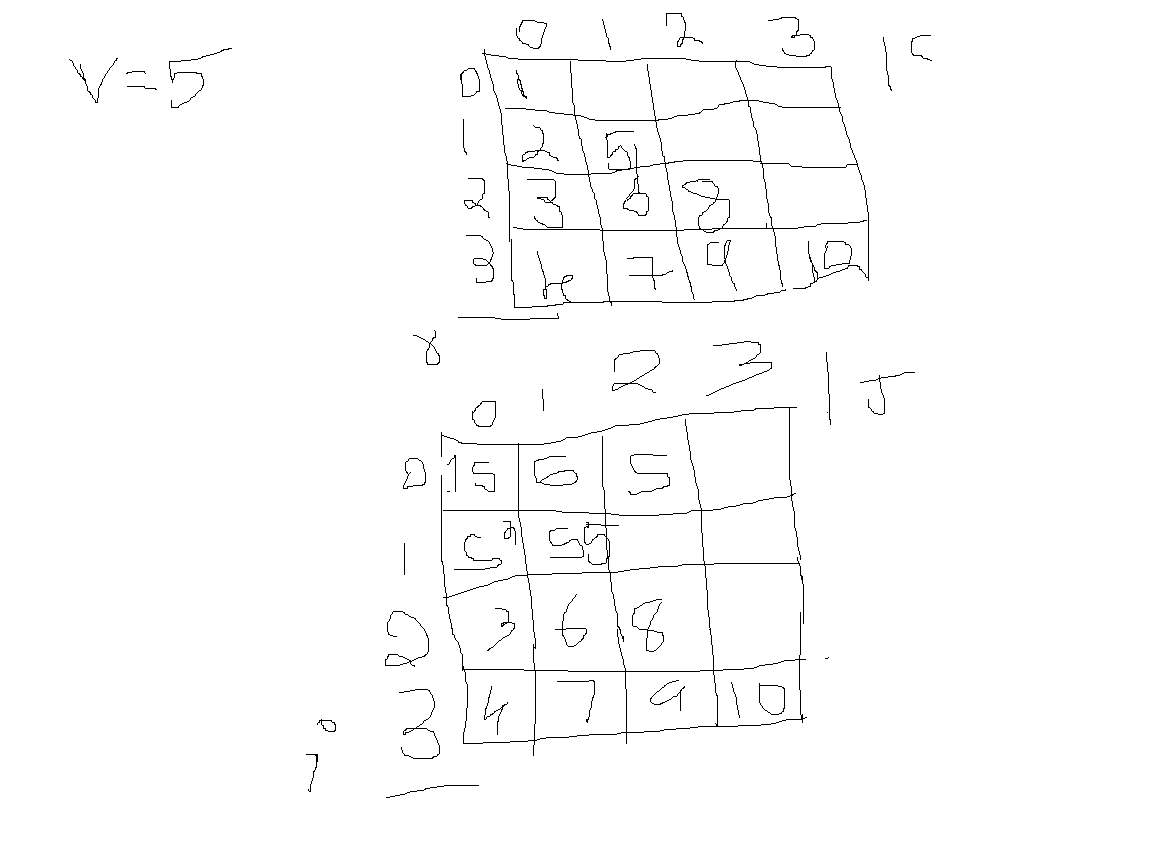 V=5
0 1 2 3
0 1
1 2 5
2 3 6 8
3 4 7 9 10
0 1 2 3 J
0 15 6 5
1
2 3 6 8
3 4 7 9 10